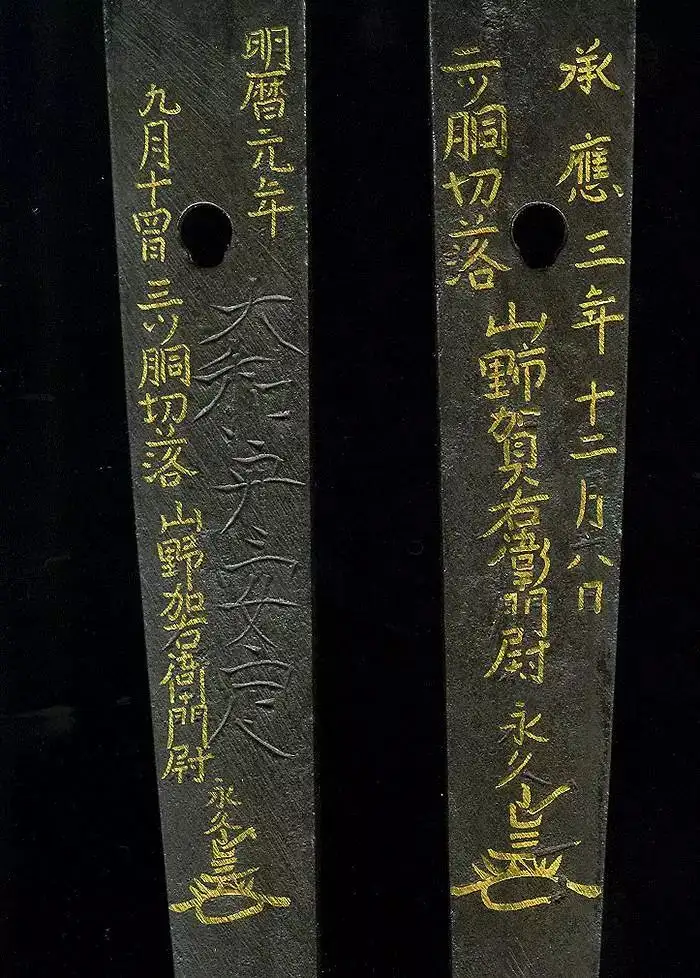 承應三年十二月六日
二ツ胴切落
山野賀右衛門尉
永久
明暦元年
大和守安定
九月十四日三ツ胴切落山野加右衛門尉
永久